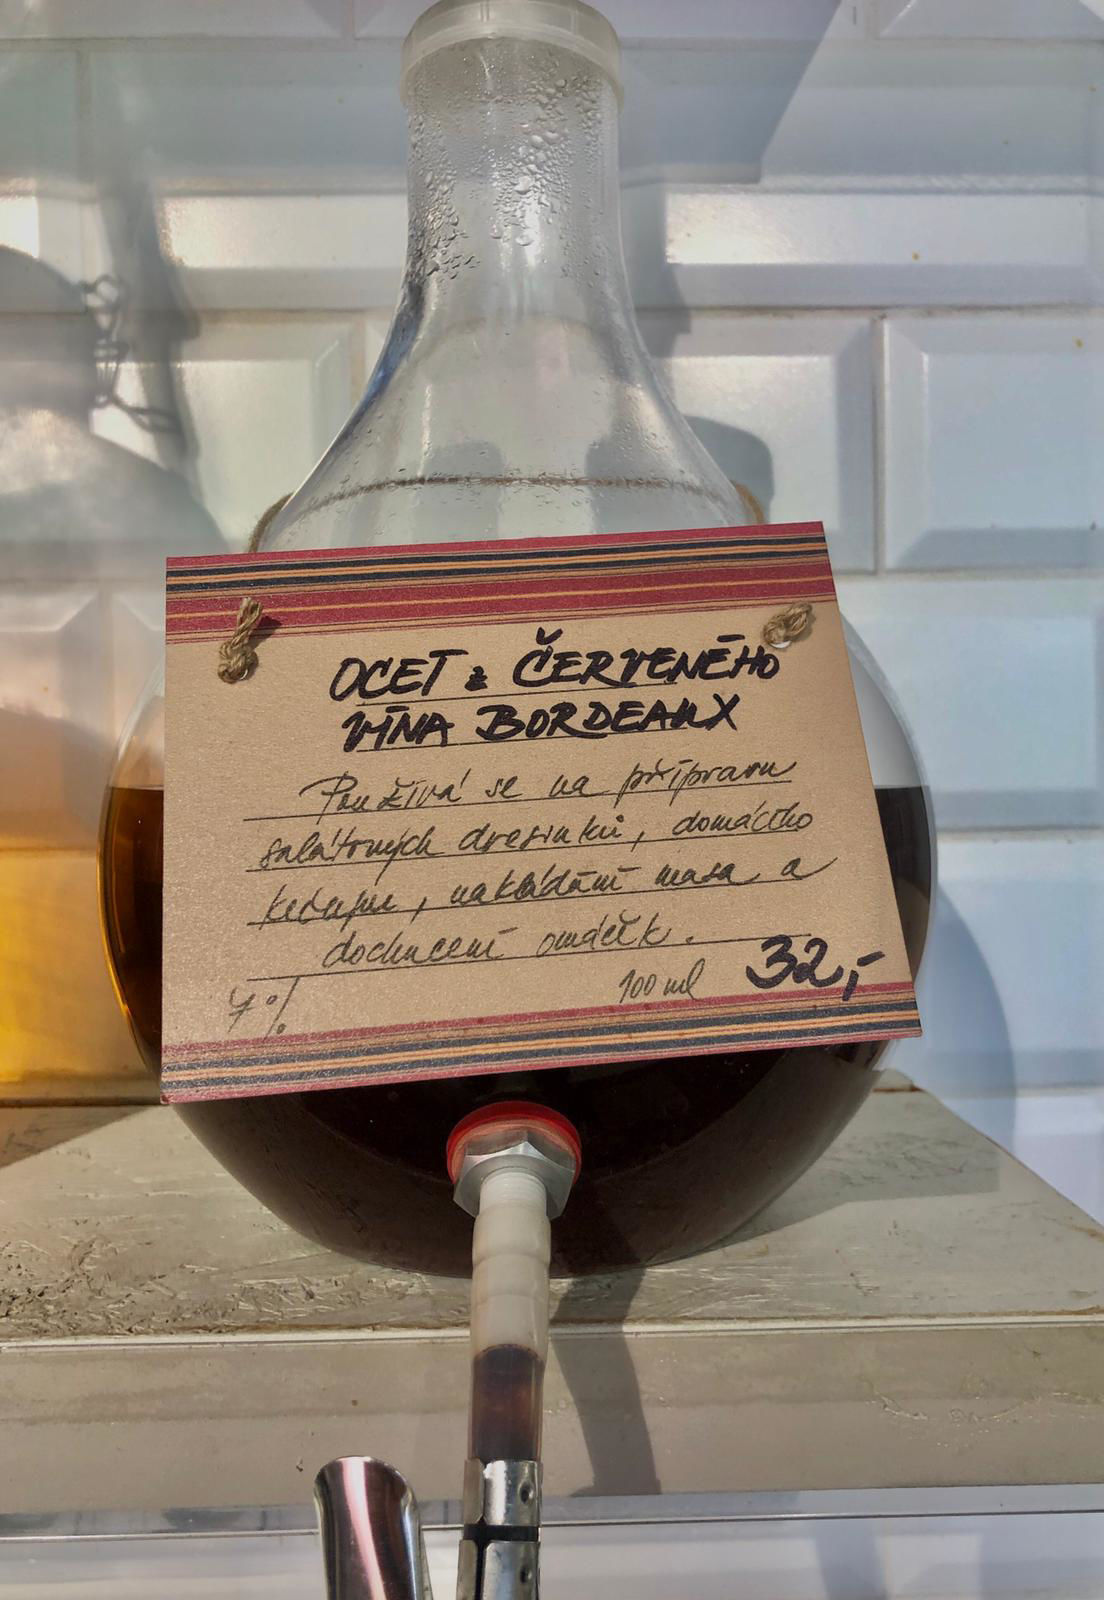 OCET z ČERVENÉHO
VÍNA BORDEAUX
Používá se na přípravu
salátových dresinků, domácího
kečupu, nakládání masa a
dochucení omáček.
7%
100 ml 32,-